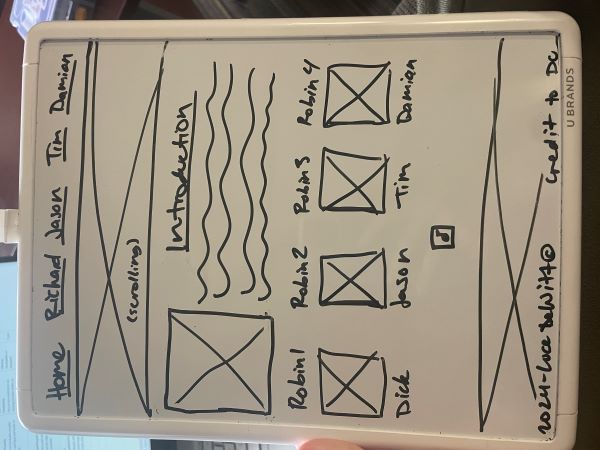 Home Richard Jason Tim Damian
(scrolling)
Introduction
Robin1 Robin2 Robin3 Robin4
Dick Jason Tim Damian
2024-Luce DeWitt©
Credit to DC
U BRANDS